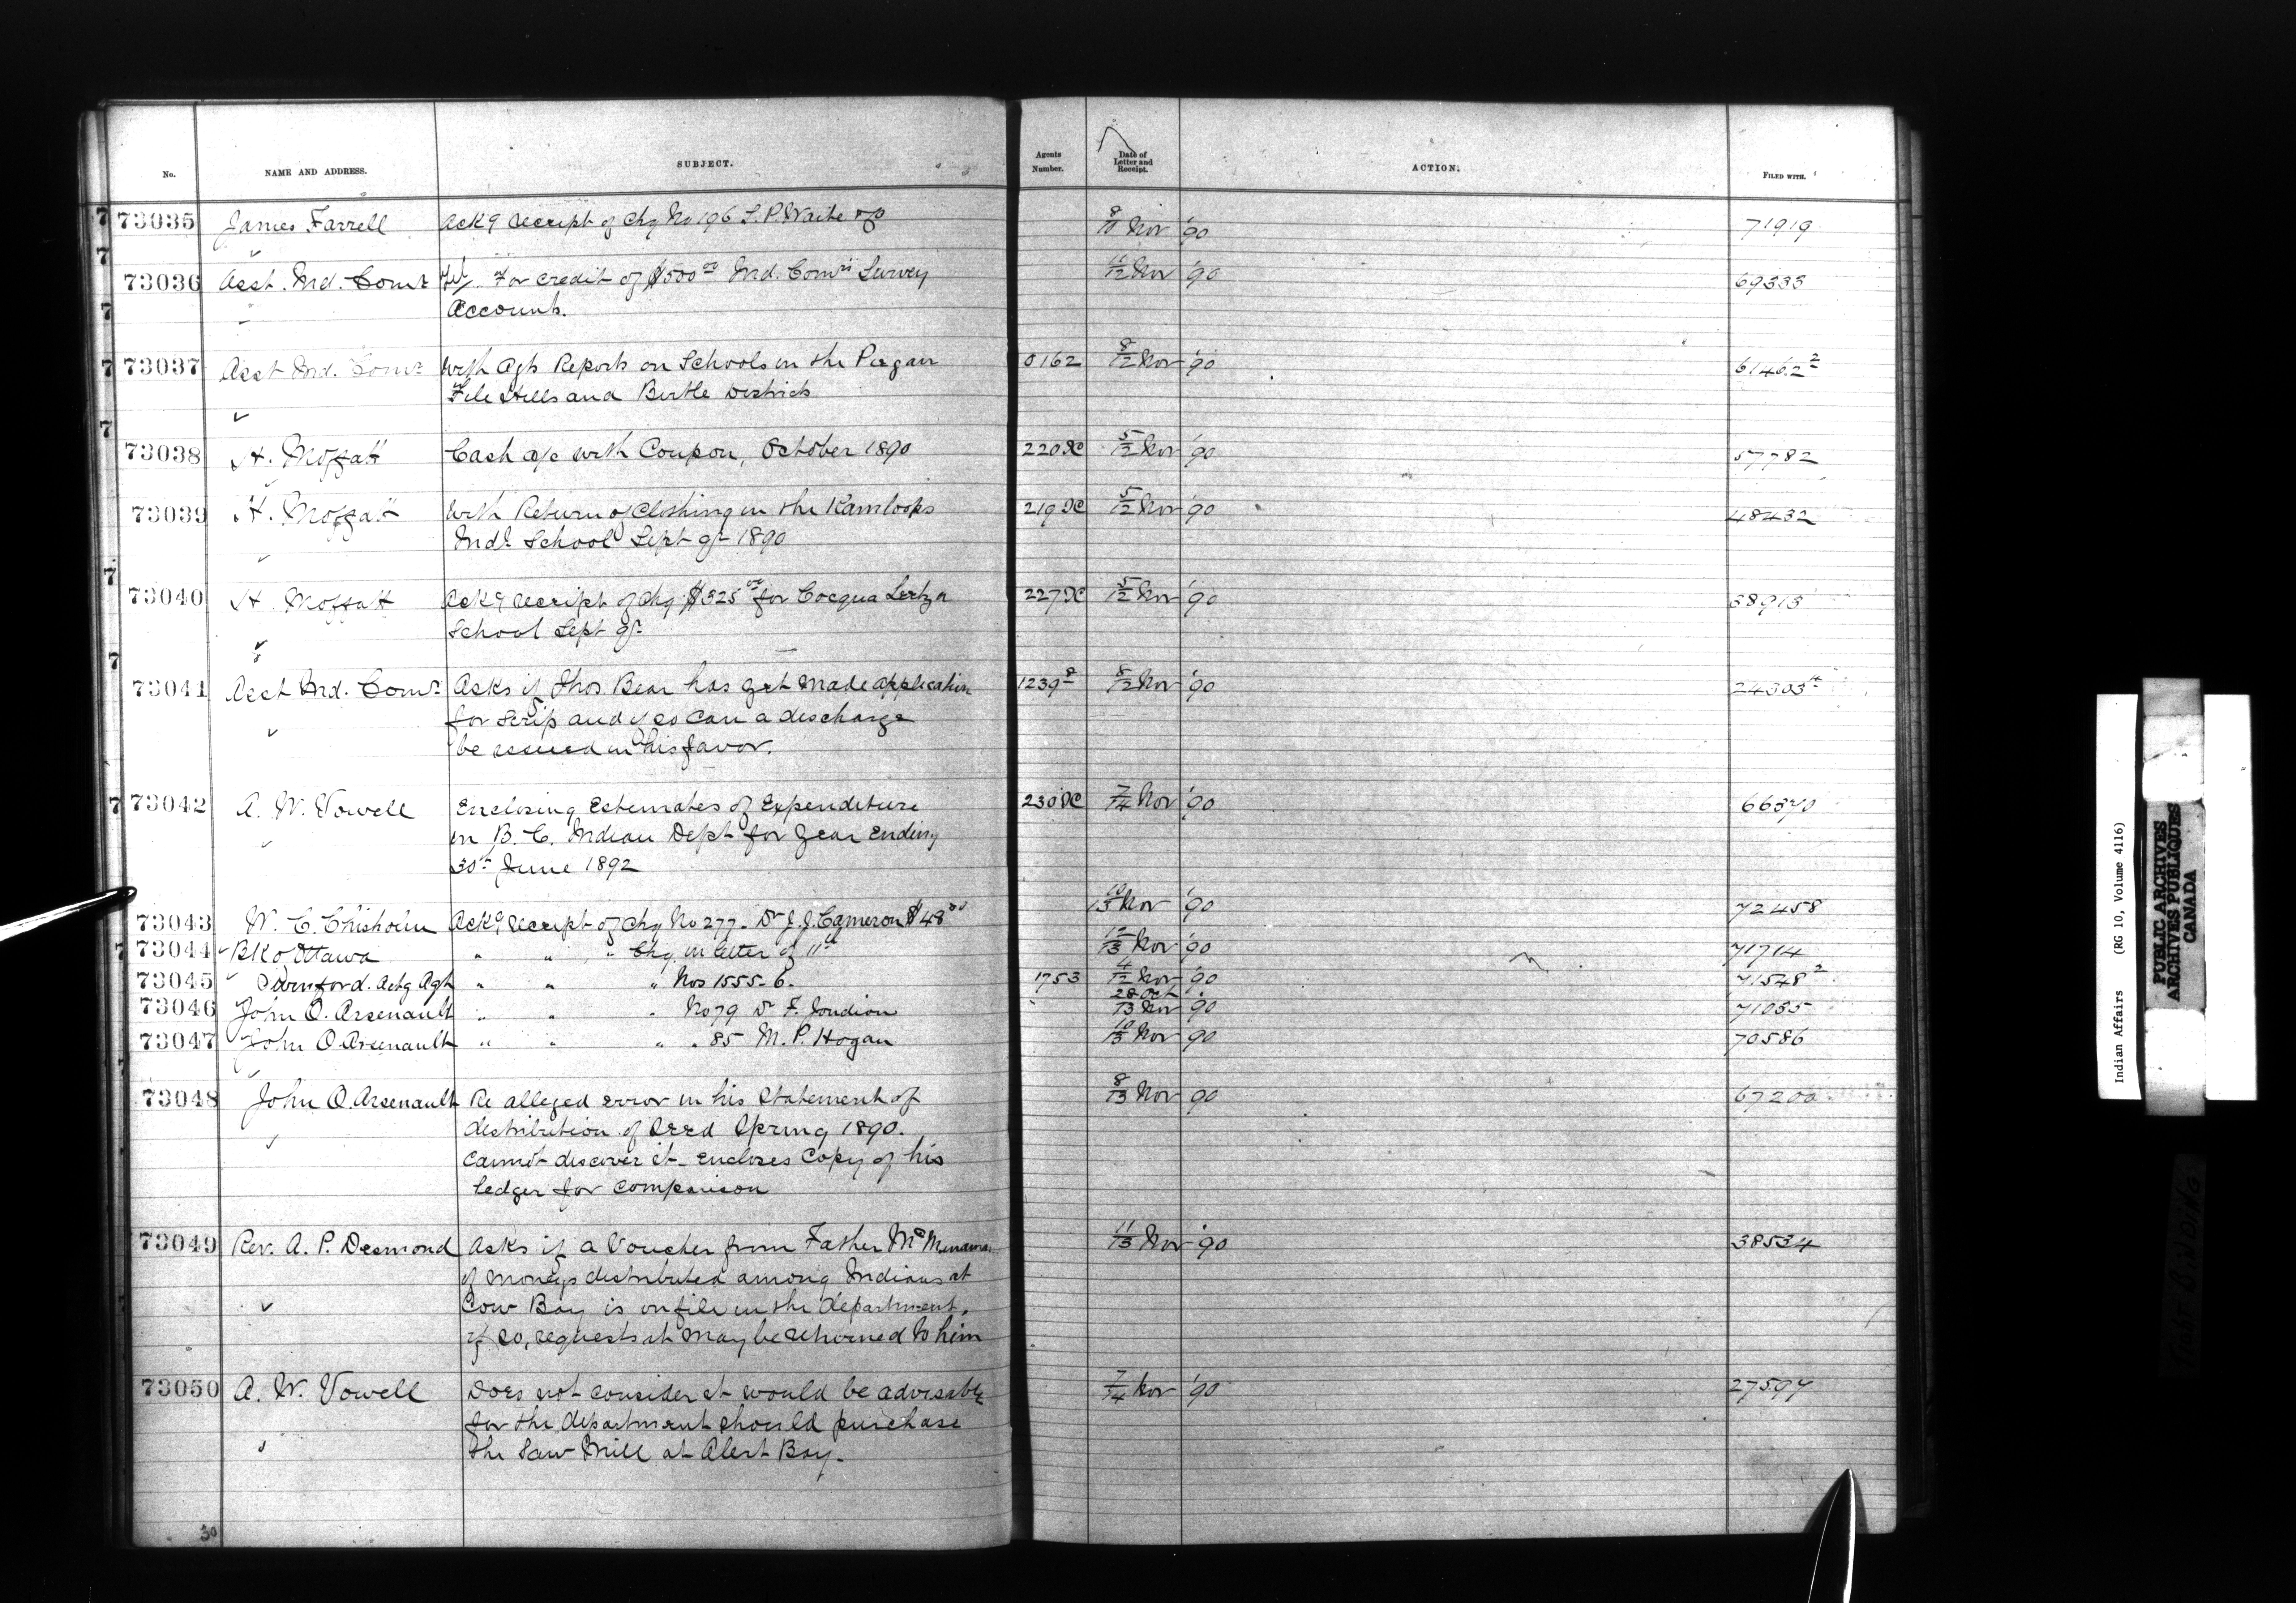 No. NAME AND ADDRESS. SUBJECT. Agents Number. Date of Letter and Receipt. ACTION. FILED WITH.
73035 James Farrell Ackg receipt of chq No 196 S. P. Waite 8/10 Nov '90 71919
73036 Asst. Ind. Comr Tel. For credit of $500 00 Ind. Comrs Survey 11/12 Nov '90 69333
Account.
73037 Asst Ind. Comr With Agts Reports on Schools in the Piegan 0162 8/12 Nov '90 61462 2
File Hills and Birtle Districts
73038 H. Moffatt Cash a/c with Coupon, October 1890 220 5/12 Nov '90 57782
73039 H. Moffatt With Return of Clothing in the Kamloops 219 5/12 Nov '90 48432
Indl School Sept qr 1890
73040 H. Moffatt Ackg receipt of chq $325 00 for 227 5/12 Nov '90 38913
School Sept qr
73041 Asst Ind. Comr Asks if Thos Bear has yet made application 1239 8/12 Nov '90 24303
for Scrip and if so can a discharge
be issued in his favor.
73042 A. W. Vowell Enclosing Estimates of Expenditure 230 7/14 Nov '90 66370
in B. C. Indian Dept for year ending
30th June 1892
73043 W. C. Chisholm Ackg receipt of chq No 277 Dr J. J. Cameron $48 00 10/13 Nov '90 72458
73044 Bk of Ottawa " " " Chq in letter of 11th 12/13 Nov '90 71714
73045 Actg Agt " " " Nos 1555-6. 1753 4/12 Nov '90 71548 2
73046 John O. Arsenault " " " No 79 Dr F. 28 Oct/13 Nov 90 71035
73047 John O Arsenault " " " " 85 M. P. Hogan 10/13 Nov 90 70586
73048 John O. Arsenault Re alleged error in his Statement of 8/13 Nov 90 67200
distribution of Seed Spring 1890.
Cannot discover it - encloses Copy of his
Ledger for comparison
73049 Rev. A. P. Desmond Asks if a Voucher from Father 11/13 Nov '90 38534
of moneys distributed among Indians at
Cow Bay is on file in the department,
if so, requests it may be returned to him
73050 A. W. Vowell Does not consider it would be advisable 7/14 Nov '90 27597
for the department should purchase
the Saw Mill at Alert Bay.
30
Indian Affairs (RG 10, Volume 4116)
PUBLIC ARCHIVES
ARCHIVES PUBLIQUES
CANADA